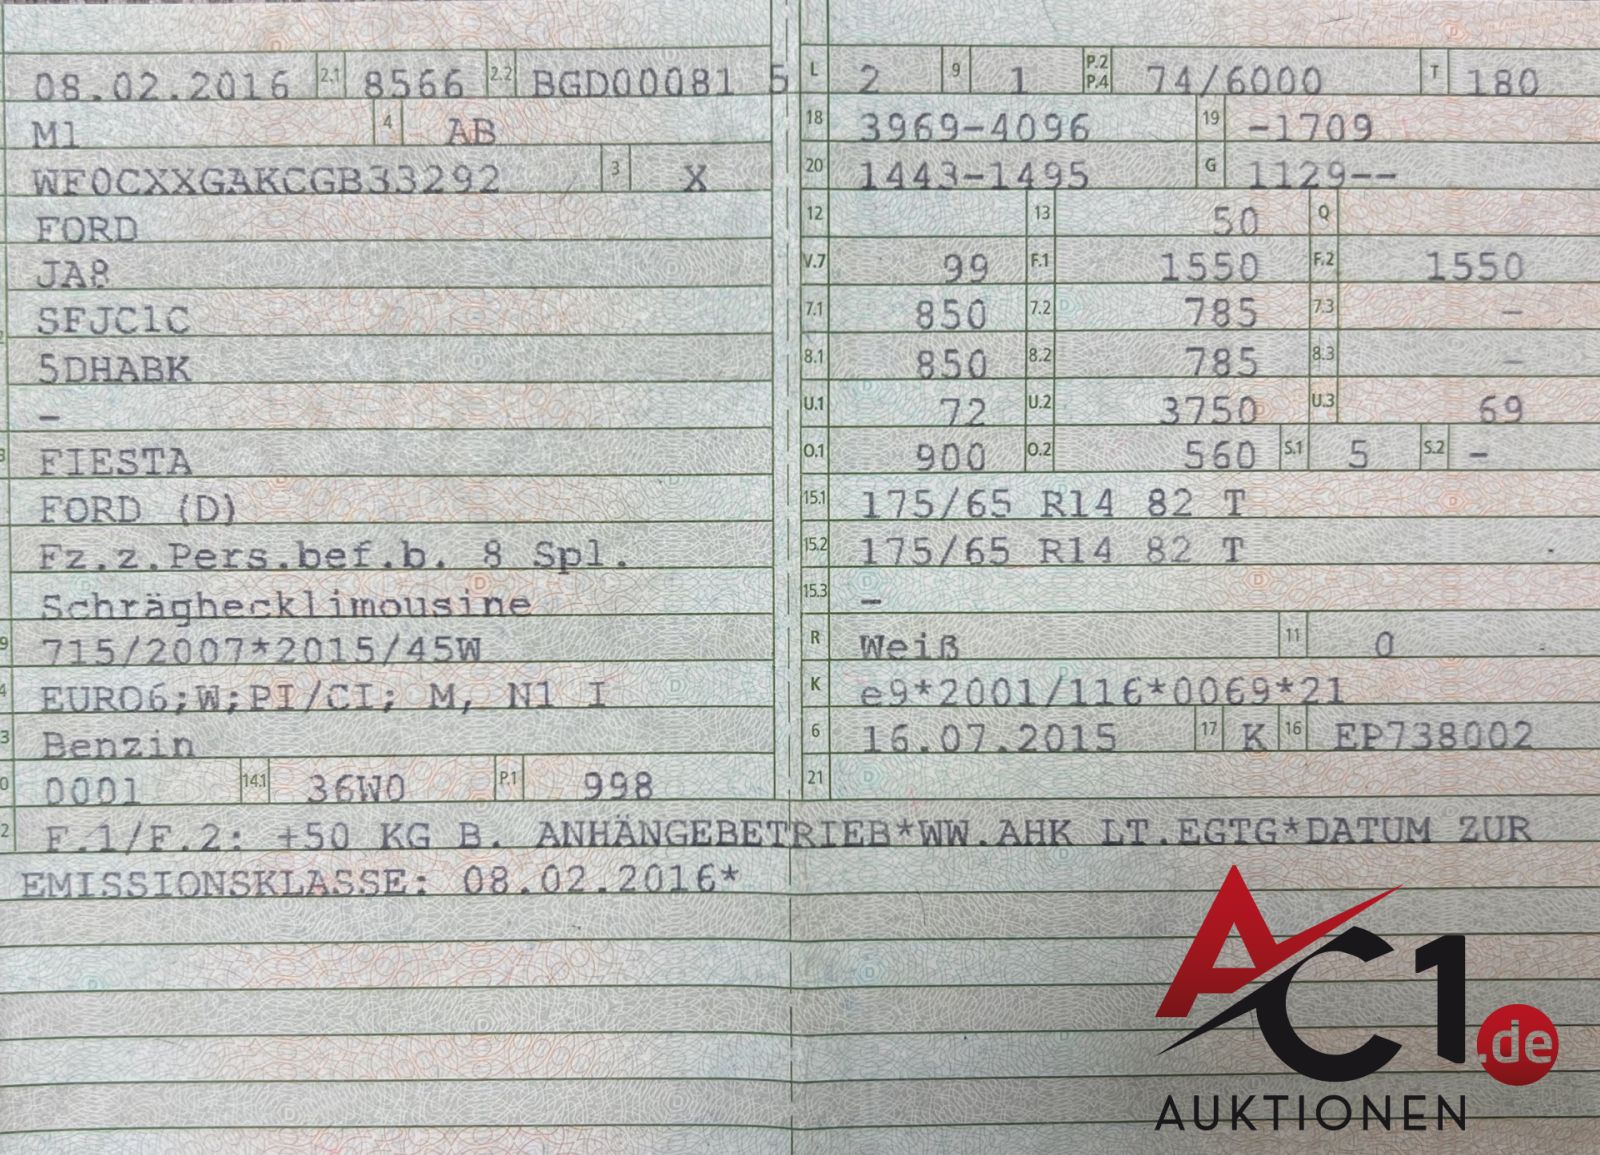 08.02.2016 2.1 8566 2.2 BGD00081 5
M1 4 AB
WF0CXXGAKCGB33292 3 X
FORD
JA8
SFJC1C
5DHABK
–
FIESTA
FORD (D)
Fz.z.Pers.bef.b. 8 Spl.
Schräghecklimousine
715/2007*2015/45W
EURO6;W;PI/CI; M, N1 I
Benzin
0001 14.1 36W0 P.1 998
L 2 9 1 P.2 P.4 74/6000 T 180
18 3969-4096 19 -1709
20 1443-1495 G 1129--
12 13 50 Q
V.7 99 F.1 1550 F.2 1550
7.1 850 7.2 785 7.3 –
8.1 850 8.2 785 8.3 –
U.1 72 U.2 3750 U.3 69
O.1 900 O.2 560 S.1 5 S.2 –
15.1 175/65 R14 82 T
15.2 175/65 R14 82 T
15.3 –
R Weiß 11 0
K e9*2001/116*0069*21
6 16.07.2015 17 K 16 EP738002
21
F.1/F.2: +50 KG B. ANHÄNGEBETRIEB*WW.AHK LT.EGTG*DATUM ZUR
EMISSIONSKLASSE: 08.02.2016*
AC1.de
AUKTIONEN